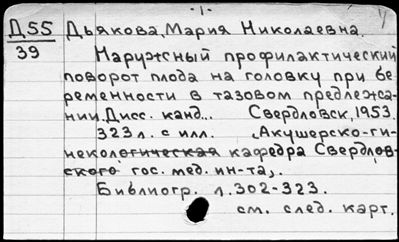 -1-
Д55 Дьякова, Мария Николаевна.
39
Наружный профилактический
поворот плода на головку при бе
ременности в тазовом предлежа-
нии. Дисс. канд... Свердловск, 1953.
323 л. с илл. „Акушерско-ги-
некологическая кафедра Свердлов-
ского гос. мед. ин-та„.
Библиогр. л. 302-323.
см. след. карт.